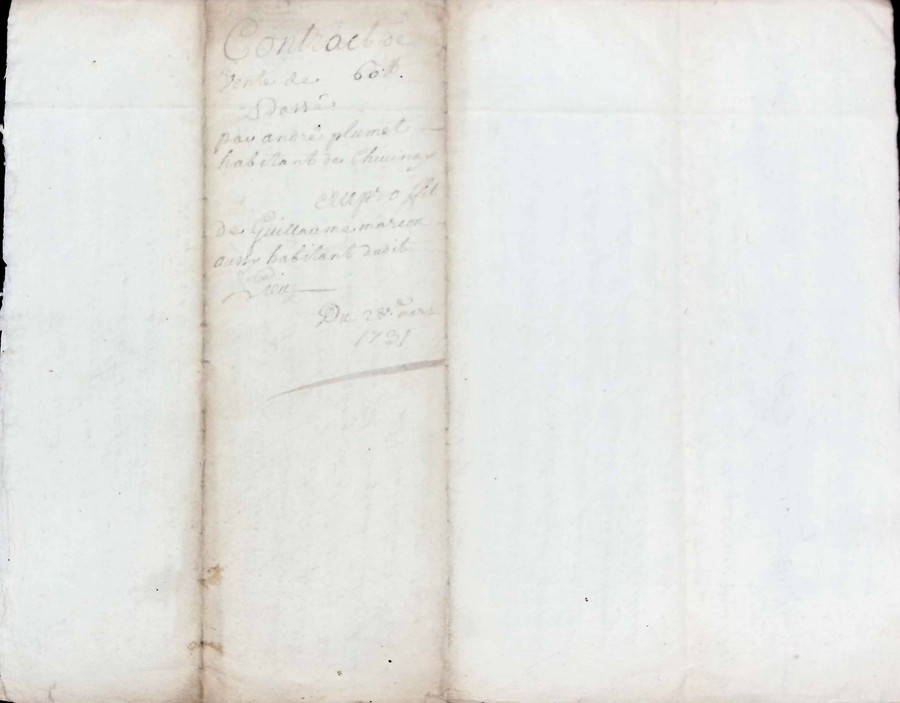 Contract de
Vente de 60ᵗᵗ.
par andré plumet
habitant de
Au proffit
de Guillaume marcon
aussy habitant dudit
Lieu
Du 28.
1731